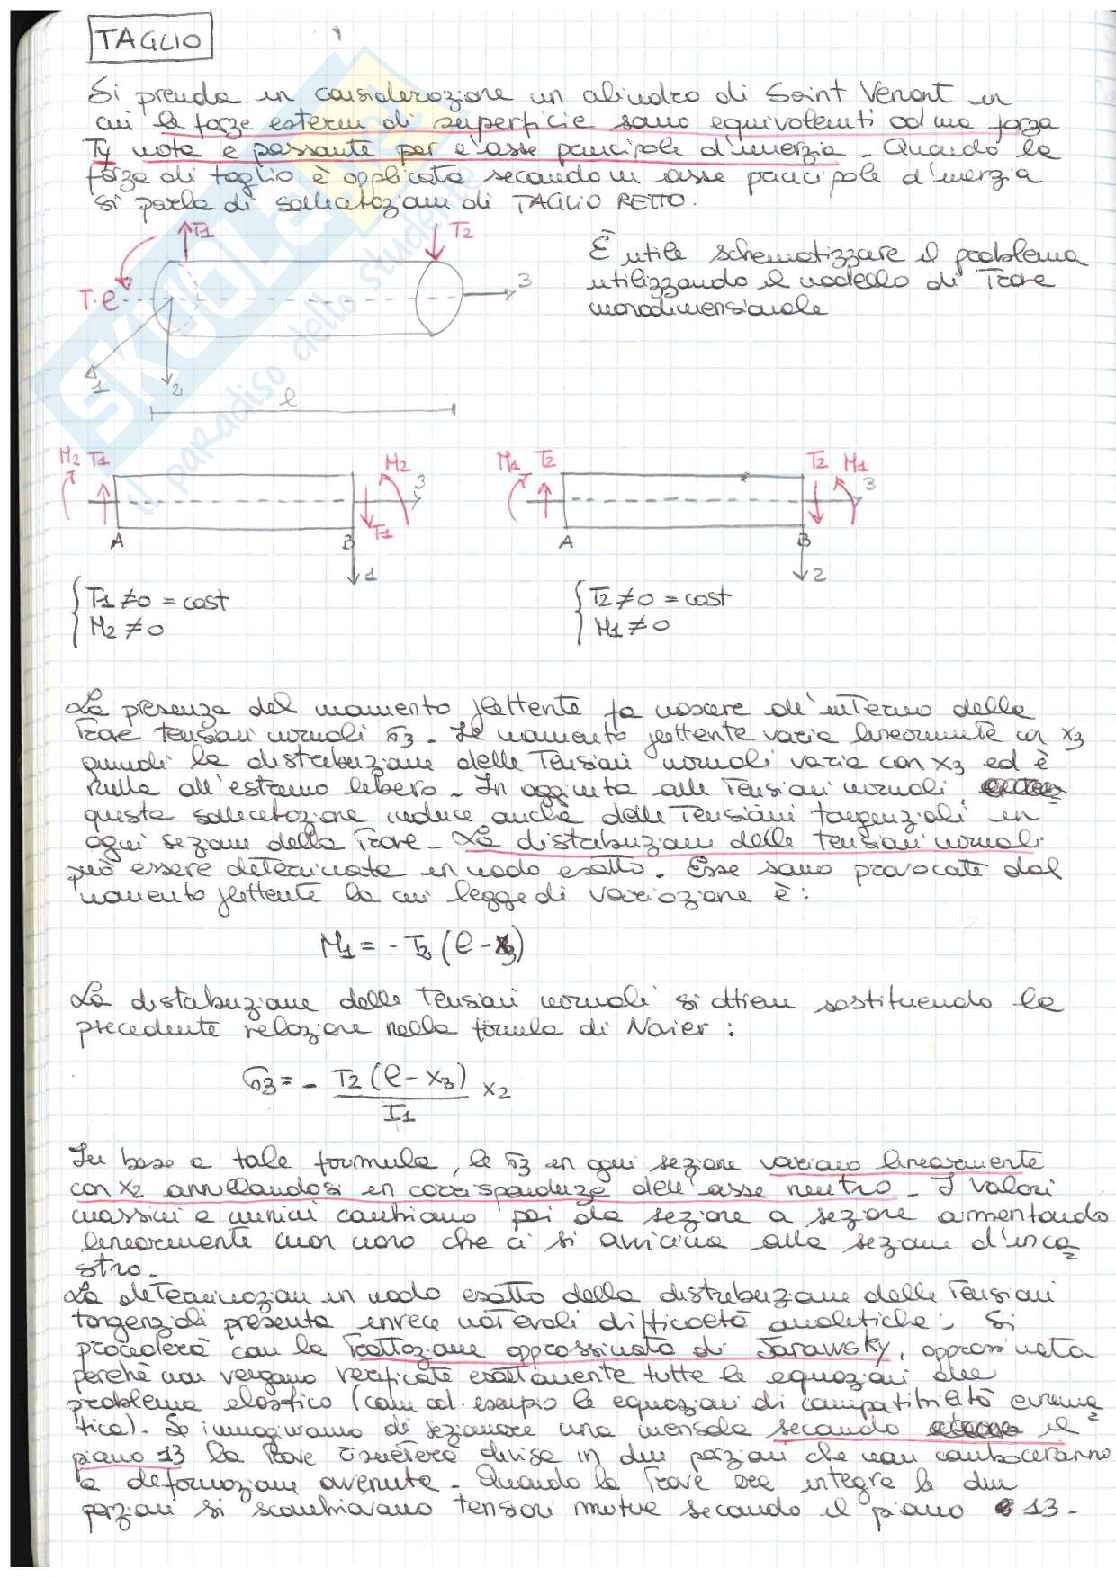 TAGLIO
Si prenda in considerazione un cilindro di Saint Venant in
cui le forze esterne di superficie sono equivalenti ad una forza
Ty nota e passante per l'asse principale d'inerzia. Quando la
forza di taglio è applicata secondo un asse principale d'inerzia
si parla di sollecitazioni di TAGLIO RETTO.
T1
T2
È utile schematizzare il problema
utilizzando il modello di Trave
monodimensionale
T·l
3
1
2
l
M2 T1
M2
3
T1
A
B
1
M1 T2
T2 M1
3
A
B
2
T1 ≠ 0 = cost
M2 ≠ 0
T2 ≠ 0 = cost
M1 ≠ 0
La presenza del momento flettente fa nascere all'interno della
Trave tensioni normali σ3. Il momento flettente varia linearmente con x3
quindi la distribuzione delle Tensioni normali varia con x3 ed è
nulla all'estremo libero. In aggiunta alle Tensioni normali,
questa sollecitazione induce anche delle Tensioni tangenziali in
ogni sezione della Trave. La distribuzione delle tensioni normali
può essere determinata in modo esatto. Esse sono provocate dal
momento flettente la cui legge di variazione è:
M1 = - T2 (l - x3)
La distribuzione delle Tensioni normali si ottiene sostituendo la
precedente relazione nella formula di Navier:
σ3 = - T2 (l - x3) x2
I1
In base a tale formula, le σ3 in ogni sezione variano linearmente
con x2 annullandosi in corrispondenza dell'asse neutro. I valori
massimi e minimi cambiano poi da sezione a sezione aumentando
linearmente man mano che ci si avvicina alla sezione d'inca
stro.
La determinazione in modo esatto della distribuzione delle Tensioni
tangenziali presenta invece notevoli difficoltà analitiche. Si
procederà con la Trattazione approssimata di Jarawsky, approssimata
perché non vengono verificate esattamente tutte le equazioni del
problema elastico (come ad esempio le equazioni di compatibilità
tica). Se immaginiamo di sezionare una mensola secondo il
piano 13 la Trave risulterà divisa in due porzioni che non combaceranno
a deformazione avvenuta. Quando la Trave era integra le due
porzioni si scambiavano tensioni mutue secondo il piano 13.
SKUOLA
il paradiso dello studente